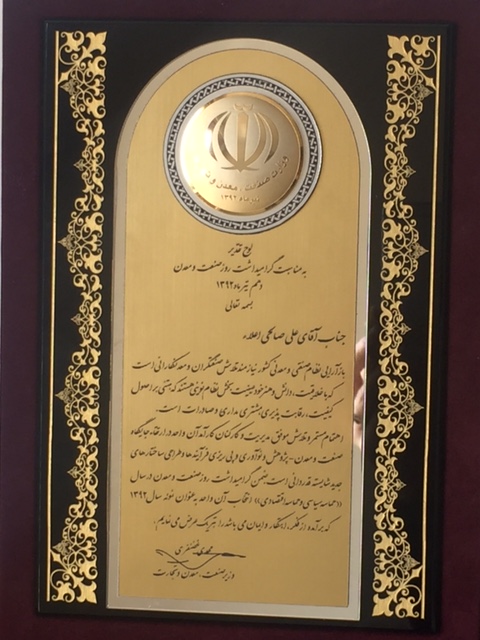 وزارت صنعت، معدن و تجارت
تیر ماه ۱۳۹۲
لوح تقدیر
به مناسبت گرامیداشت روز صنعت و معدن
دهم تیر ماه ۱۳۹۲
بسمه تعالی
جناب آقای علی صالحی اعلاء
بازآرایی نظام صنعتی و معدنی کشور نیازمند تلاش صنعتگران و معدنکارانی است
که با خلاقیت، دانش و هنر خود عینیت بخش نظام نوینی هستند که مبتنی بر اصول
کیفیت، رقابت پذیری، مشتری مداری و صادرات است.
اهتمام مستمر و تلاش موفق مدیریت و کارکنان کارآمد آن واحد در ارتقاء جایگاه
صنعت و معدن - پژوهش و نوآوری و پی ریزی فرآیندها و طراحی ساختارهای
جدید شایسته قدردانی است. ضمن گرامیداشت روز صنعت و معدن در سال
«حماسه سیاسی و حماسه اقتصادی» انتخاب آن واحد به عنوان نمونه سال ۱۳۹۲
که برآمده از تفکر، ابتکار و ایمان می باشد را تبریک عرض می نمایم.
مهدی غضنفری
وزیر صنعت، معدن و تجارت